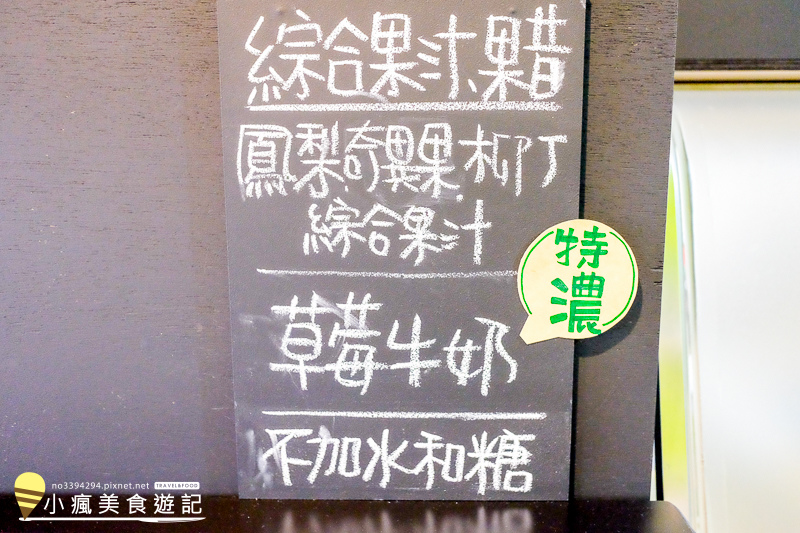 綜合果汁、果醋
鳳梨.奇異果.柳丁
綜合果汁
特濃
草莓牛奶
不加水和糖
no3394294.pixnet.net TRAVEL&FOOD
小瘋美食遊記